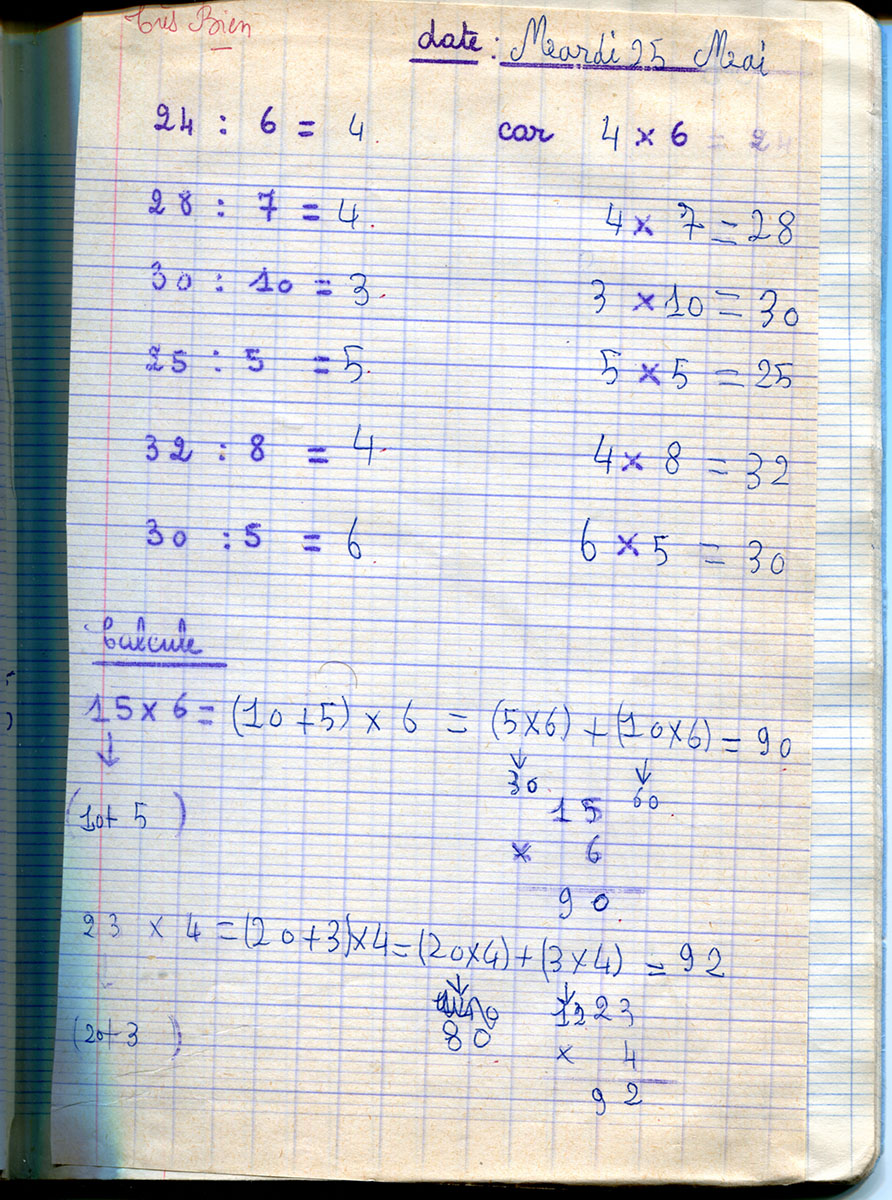 Très Bien
date : Mardi 25 Mai
24 : 6 = 4 car 4 × 6 = 24
28 : 7 = 4 4 × 7 = 28
30 : 10 = 3 3 × 10 = 30
25 : 5 = 5 5 × 5 = 25
32 : 8 = 4 4 × 8 = 32
30 : 5 = 6 6 × 5 = 30
Calcule
15 × 6 = (10 + 5) × 6 = (5 × 6) + (10 × 6) = 90
↓ ↓ ↓
30 60
(10 + 5) 15
× 6
90
23 × 4 = (20 + 3) × 4 = (20 × 4) + (3 × 4) = 92
↓ ↓
12 23
(20 + 3) 80
× 4
92